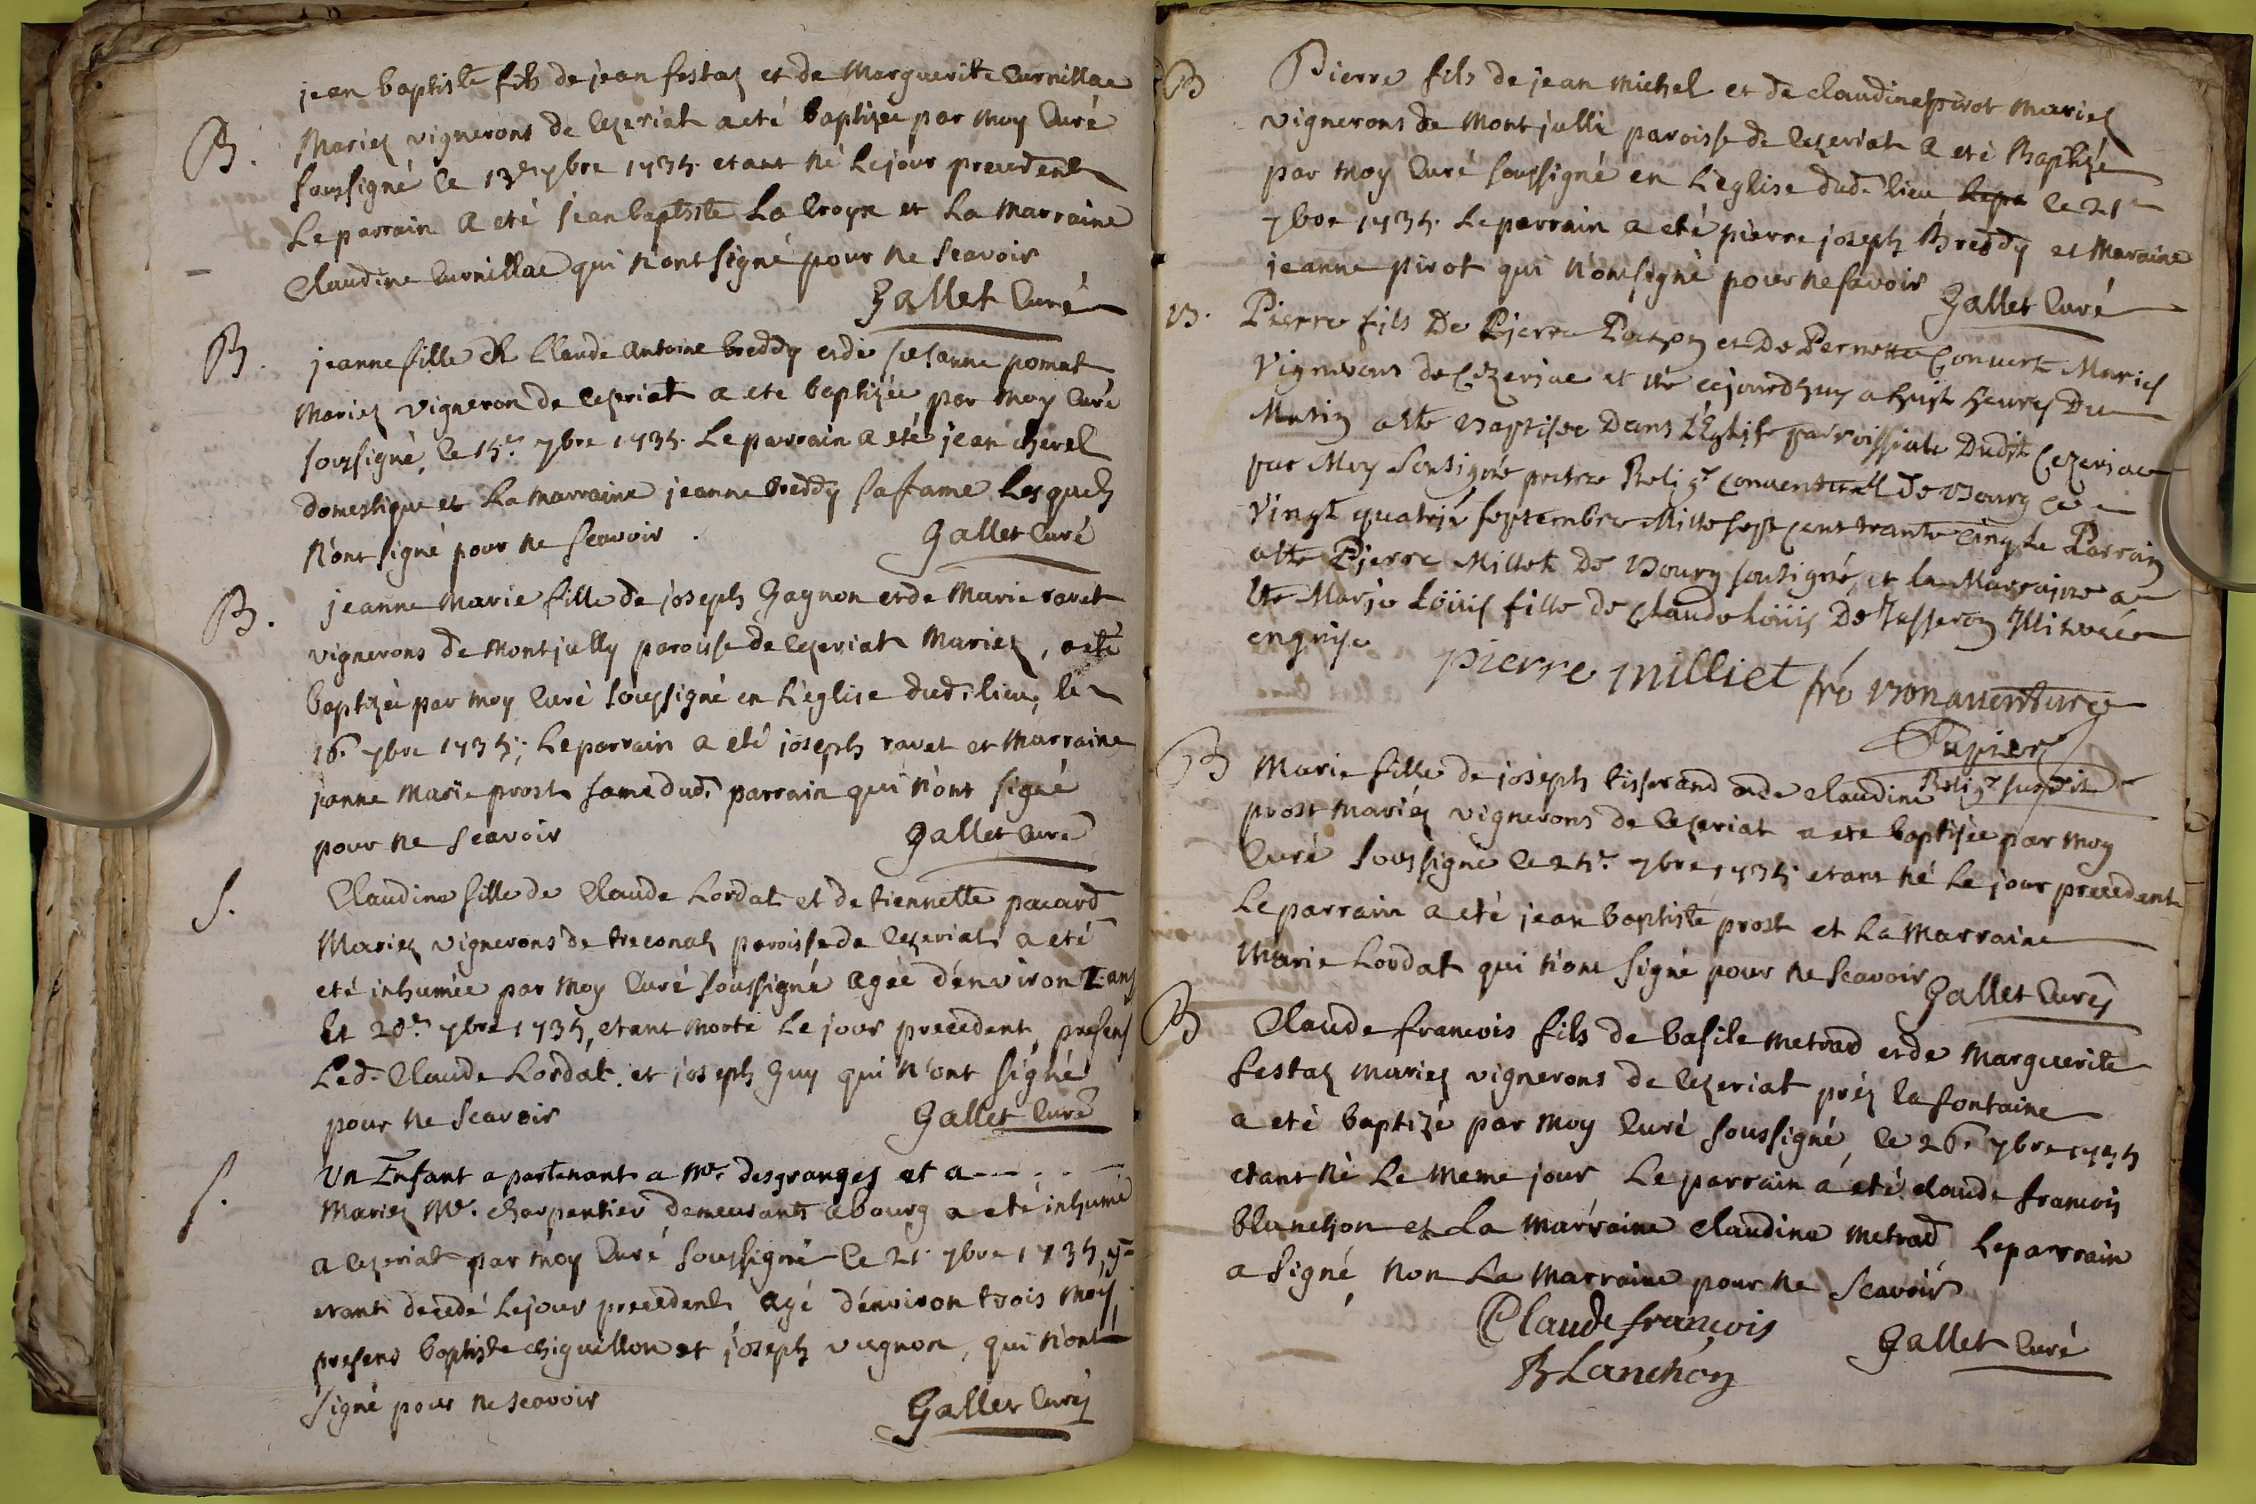 jean baptiste fils de jean festaz et de Marguerite Curnillac
B. Mariez vignerons de Cezeriat a eté baptizée par moy Curé
soussigné le 13e 7bre 1735. etant né Le jour precedent
Le parrain a eté jean baptiste La Croyx et La Marraine
Claudine Curnillac qui n'ont signé pour ne scavoir
Gallet Curé
B. jeanne fille de Claude Antoine breddy et de susanne pomat
Mariez vigneron de Cezeriat a eté baptizée par moy Curé
soussigné, le 15e 7bre 1735. Le parrain a eté jean cherel
domestique et La marraine jeanne breddy sa fame Lesquels
n'ont signé pour ne scavoir.
Gallet Curé
B. jeanne Marie fille de joseph Gagnon et de Marie ravet
vignerons de Montjully paroisse de Cezeriat Mariez, a eté
baptizée par moy Curé soussigné en L'eglise dud. lieu, le
16e 7bre 1735; Le parrain a eté joseph ravet et Marraine
janne Marie prost fame dud. parrain qui n'ont signé
pour ne scavoir
Gallet Curé
S. Claudine fille de Claude Lordat et de tiennette pacard
Mariez vignerons de treconaz paroisse de Cezeriat a eté
eté inhumée par moy Curé soussigné agée d'environ ans
Le 20e 7bre 1735, etant morte Le jour precedent, presens
Led. Claude Lordat. et joseph Guy qui n'ont signé
pour ne scavoir
Gallet Curé
S. Un Enfant apartenant a Mr. desgranges et a - - . . -
Mariez Me. charpentier demeurants a bourg a eté inhumé
a Cezeriat par moy Curé soussigné le 21. 7bre 1735,
etant decedé Le jour precedent agé d'environ trois mois,
presens baptiste chiquillon et joseph vugnon, qui n'ont
signé pour ne scavoir
Gallet Curé
B Pierre fils de jean Michel et de claudine pirot Mariez
vignerons de Montjulli paroisse de Cezeriat a eté Baptizé
par moy Curé soussigné en L'eglise dud. lieu Le pa le 21e
7bre 1735. Le parrain a eté pierre joseph Breddy et Maraine
jeanne pirot qui n'ont signé pour ne savoir
Gallet Curé
B. Pierre fils De Pierre et De Pernette Convert Mariés
Vignerons de Cezeriac et né cejourdhuy a huit heures Du
Matin a été Baptisée Dans L'Eglise parroissiale Dudit Cezeriac
par Moy Soussigné pretre Relig.x Conventuel de Bourg ce
Vingt quatrié septembre Mille sept cent trante cinq Le Parrain
a été Pierre Milliet De Bourg soussigné, et la Marraine a
été Marie Loüis fille de Claude Loüis De Jasseron Illiterée
enquise
pierre milliet fré Bonaventure
Tupier
Relig.x susdit
B Marie fille de joseph tisserand et de claudine
prost mariéz vignerons de Cezeriat a ete baptisée par moy
Curé soussigné le 25e. 7bre 1735. etant né Le jour precedent
Le parrain a eté jean baptiste prost et La Marraine
Marie Lordat qui n'ont signé pour ne scavoir
Gallet Curé
B Claude francois fils de basile metrad et de Marguerite
festaz mariez vignerons de Cezeriat préz la fontaine
a eté baptizé par moy Curé soussigné, le 26e 7bre 1735
etant né Le meme jour Le parrain a eté claude francois
blanchon et La marraine claudine metrad Le parrain
a signé non La marraine pour ne scavoir
Claude françois
Blanchon
Gallet Curé